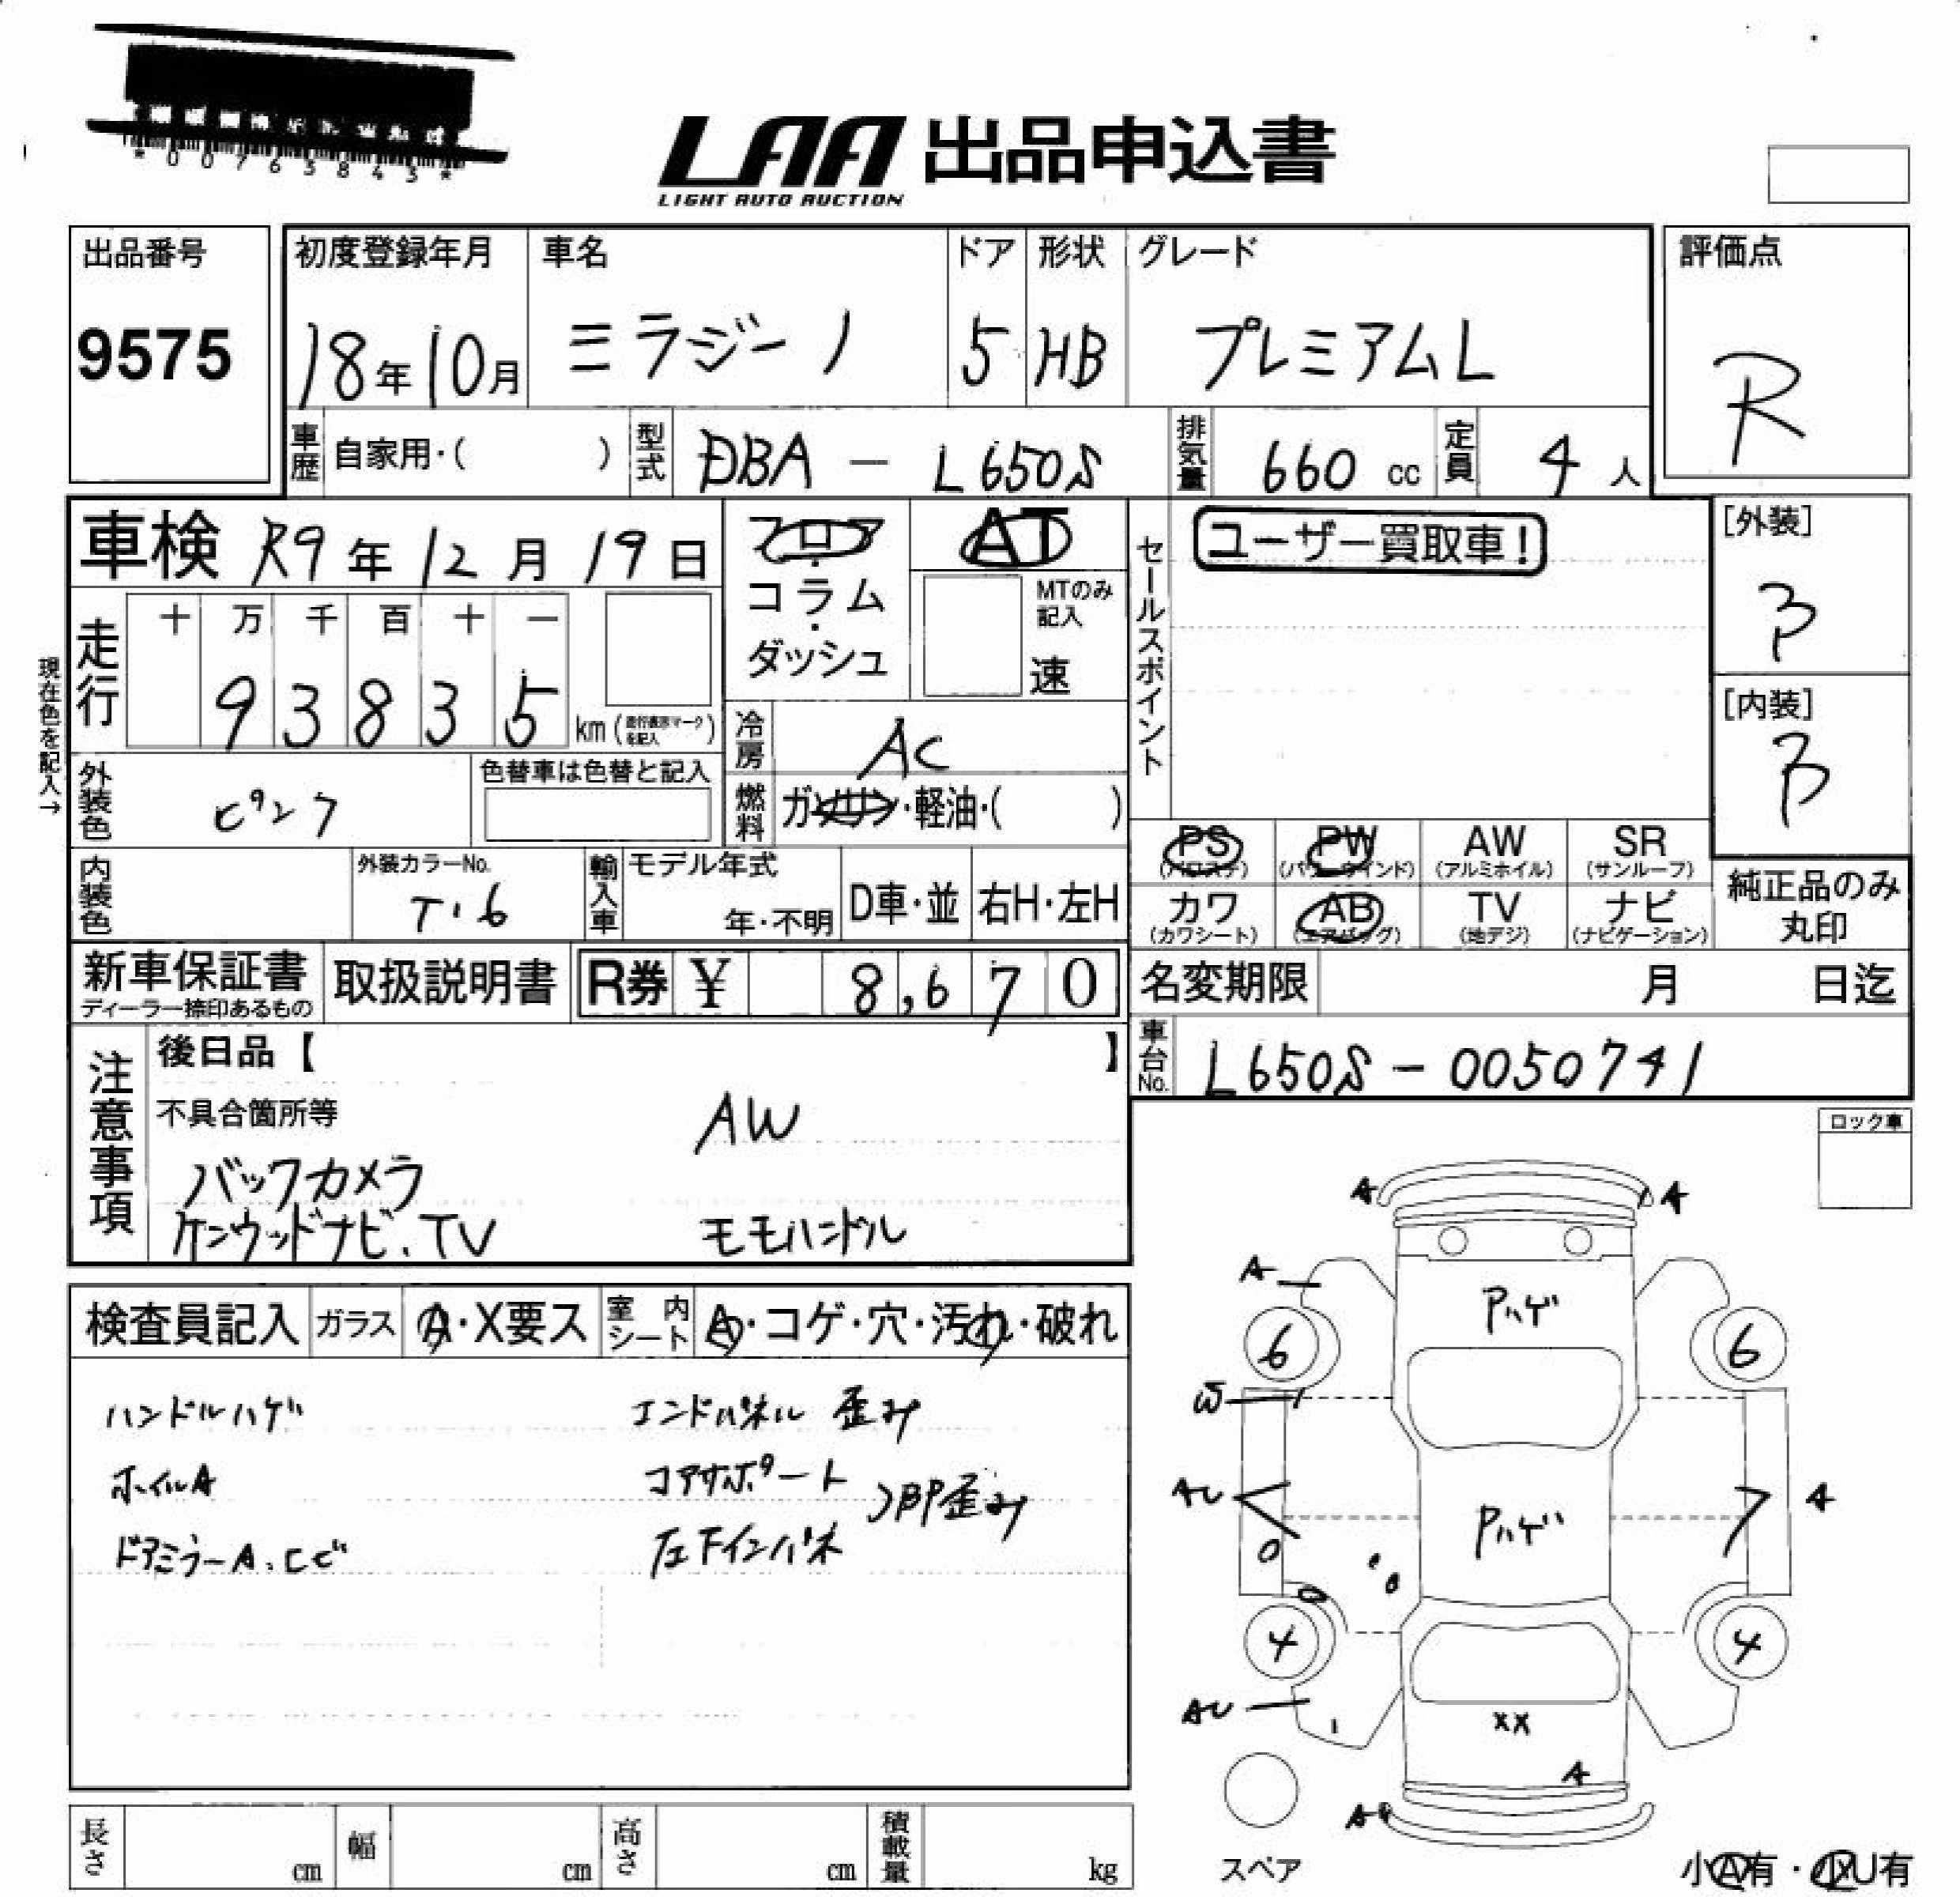 *007635843*
LAA 出品申込書
LIGHT AUTO AUCTION
出品番号
9575
初度登録年月
18年10月
車名
ミラジーノ
ドア
5
形状
HB
グレード
プレミアムL
評価点
R
車歴 自家用・( )
型式 DBA - L650S
排気量 660 cc
定員 4 人
車検 R9年12月19日
フロア・コラム・ダッシュ
AT
MTのみ記入
速
セールスポイント
ユーザー買取車!
[外装]
[内装]
現在色を記入→
走行
十 万 千 百 十 一
9 3 8 3 5 km (走行表示マークを記入)
冷房 AC
外装色 ピンク
色替車は色替と記入
燃料 ガソリン・軽油・( )
PS (パワステ)
PW (パワーウインド)
AW (アルミホイル)
SR (サンルーフ)
カワ (カワシート)
AB (エアバッグ)
TV (地デジ)
ナビ (ナビゲーション)
純正品のみ
丸印
内装色
外装カラーNo.
T・6
輸入車
モデル年式
年・不明
D車・並
右H・左H
新車保証書
ディーラー捺印あるもの
取扱説明書
R券 ¥ 8,670
名変期限 月 日迄
車台No. L650S-0050741
注意事項
後日品【 】
不具合箇所等
AW
バックカメラ
ケンウッドナビ、TV
モモハンドル
ロック車
検査員記入
ガラス A・X要ス
室内シート A・コゲ・穴・汚れ・破れ
ハンドルハゲ
エンドパネル 歪み
ホイルA
コアサポート
ドアミラーA、
左下インパネ
歪み
A
A
A
Pハゲ
6
6
A
Pハゲ
4
4
XX
A
A
スペア
小A有・小U有
長さ cm
幅 cm
高さ cm
積載量 kg